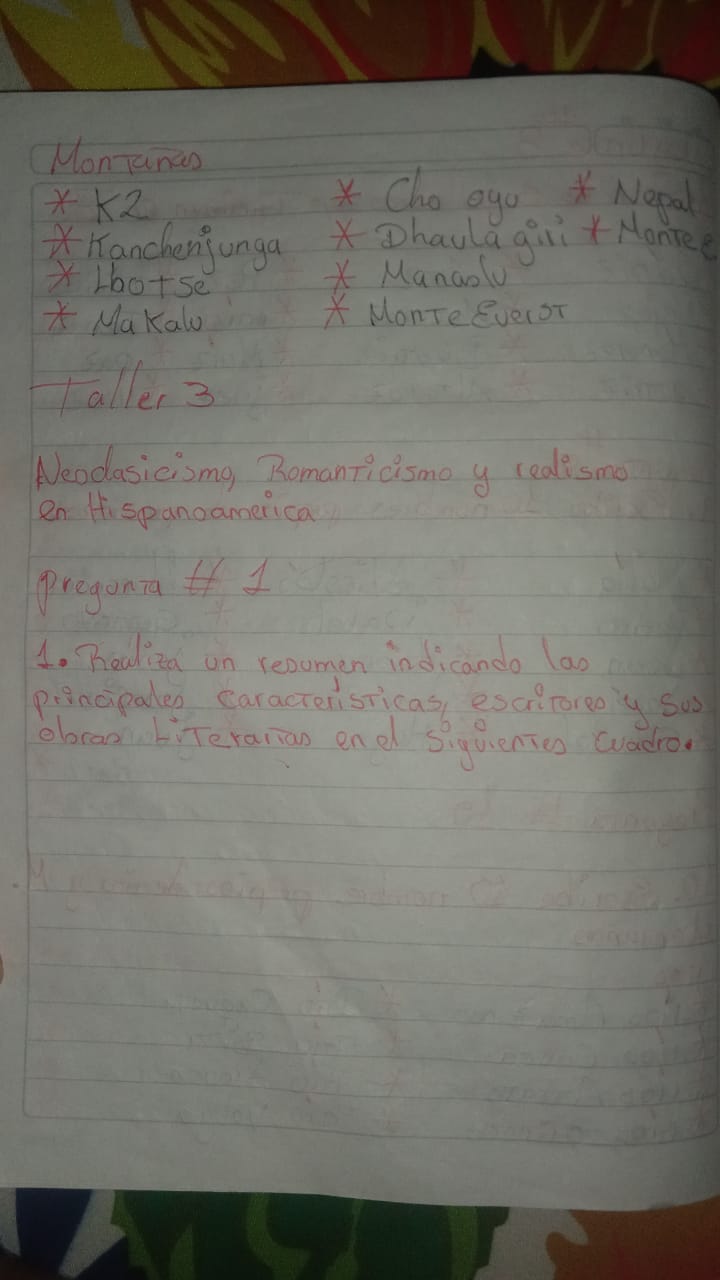 Montañas
* K2 * Cho oyu * Nepal
* Kanchenjunga * Dhaula giri * Monte e
* Lhotse * Manaslu
* Makalu * Monte Everst
Taller 3
Neoclasicismo, Romanticismo y realismo
en Hispanoamerica
Pregunta # 1
1. Realiza un resumen indicando las
principales características, escritores y sus
obras Literarias en el siguientes cuadro.